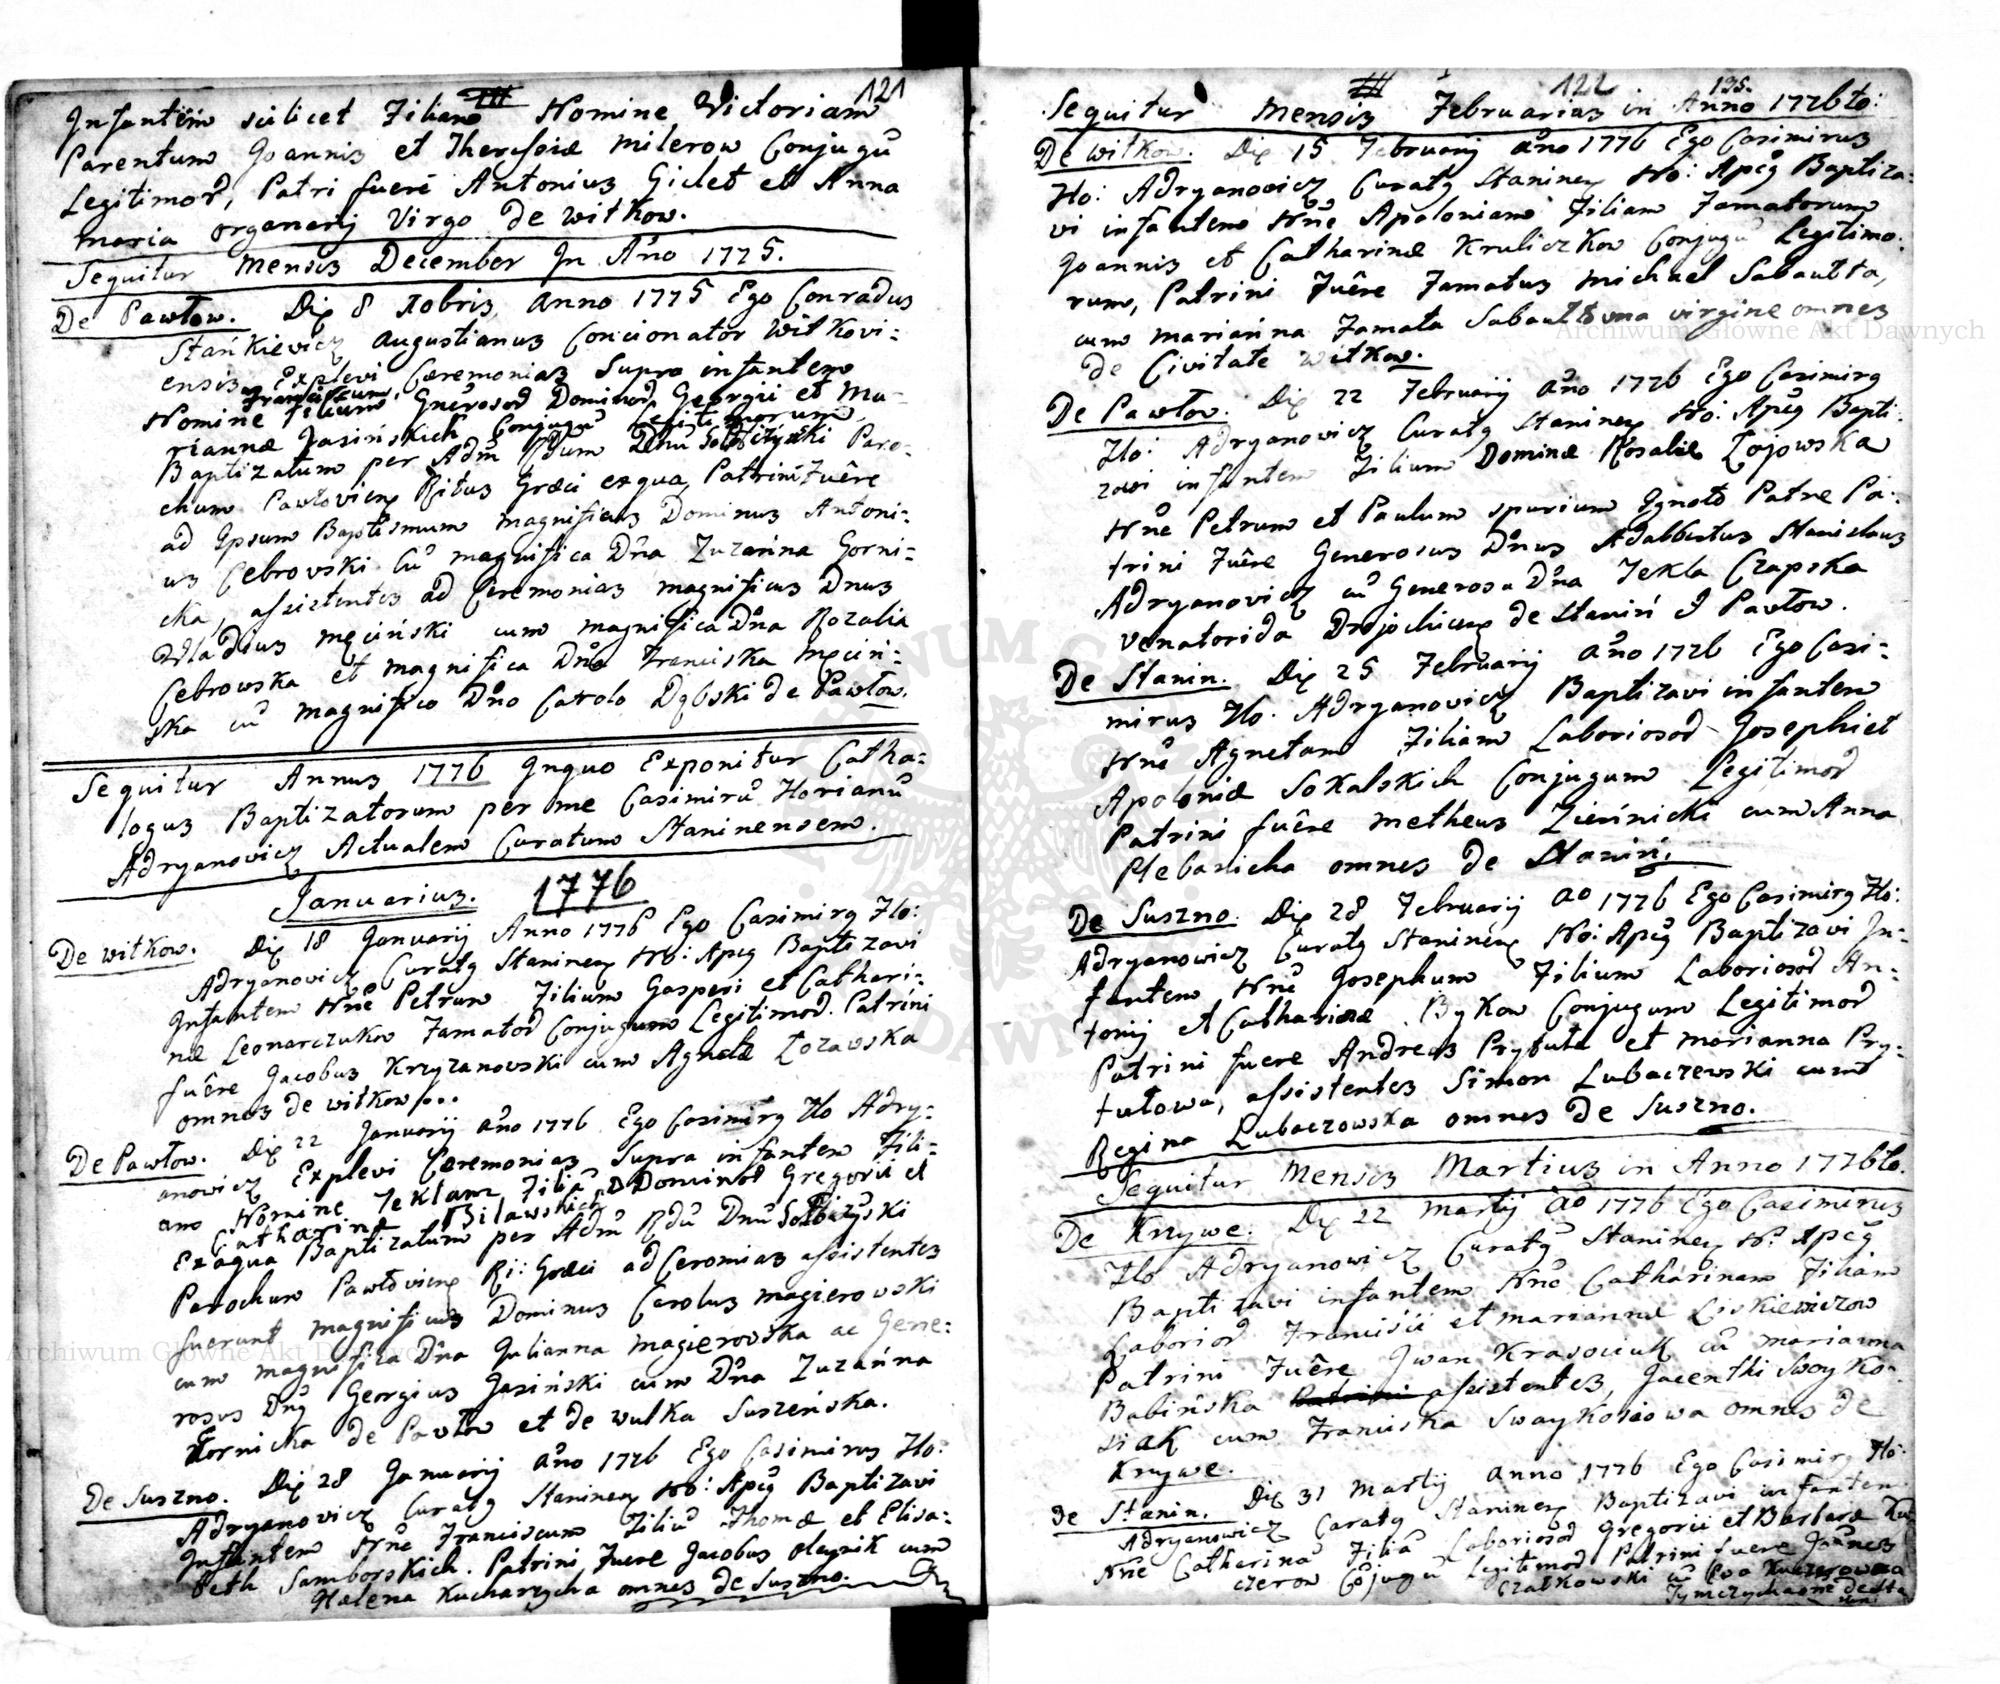 121
Infantem scilicet Filiam Nomine Victoriam
Parentum Joannis et Theresiæ Milerow Conjugū
Legitimor, Patri fuerē Antonius Gidet et Anna
Maria organarij Virgo de Witkow.
Sequitur Mensis December In Año 1775.
De Pawłow. Die 8 Xobris Anno 1775 Ego Conradus
Stańkievicz Augustianus Concionator Witkovi=
ensis Explevi Cæremonias Supra infantem
Nomine Franciscum Filium Generosod Dominod Georgii et Ma=
riannæ Jasińskich Conjugū Legitimorum
Baptizatum per Adm Rdum Dnū Paro=
chum Pawłoviens Ritus Græci ex qua, Patrini Fuêre
ad Ipsum Baptismum Magnificus Dominus Antoni=
us Cebrovski Cū Magnifica Dña Zuzańna Gorni=
cka, assistentes ad Ceremonias Magnificus Dnus
Wladius Męciński cum Magnifica Dña Rozalia
Cebrowska et Magnifica Dña Franciska Męciń=
ska cū Magnifico Dño Carolo Dąbski de Pawłow.
Sequitur Annus 1776 Inquo Exponitur Catha=
logus Baptizatorum per me Casimirū Florianū
Adryanovicz Actualem Curatum Staninensem.
Januarius. 1776
De Witkow. Die 18 Januarij Anno 1776 Ego Casimirg Flo:
Adryanovicz Curatg Staninens No: Apcg Baptizavi
Infantem Nñe Petrum Filium Gasperi et Cathari=
næ Leonarczukow Famatod Conjugum Legitimod. Patrini
fuêre Jacobus Krzyzanovski cum Agneta Zozavska
omnes de Witkow...
De Pawłow. Die 22 Januarij año 1776 Ego Casimirg Flo Adry=
anowicz Explevi Cæremonias Supra infantem Fili=
am Nomine Teklam, Filiā DDominod Gregorii et
Catharinæ Bilawskich
Ex aqua Baptizatum per Adm Rdū Dnū
Parochum Pawłoviens Ri: Græci ad Ceromias assistentes
fuerunt Magnificus Dominus Carolus Magierowski
cum Magnifica Dña Julianna Magierovska ac Gene=
rosus Dñg Georgius Jasiński cum Dña Zuzańna
Gornicka de Pavłow et de Wulka Suszeńska.
De Suszno. Die 28 Januarij año 1776 Ego Casimirus Flo:
Adryanovicz Curatg Staninens No: Apcg Baptizavi
Infantem Nñe Franciscum Filiū Thomæ et Elisa=
beth Samborskich. Patrini Fuere Jacobus Oleynik cum
Helena Kucharzycha omnes de Suszno.
122 195.
Sequitur Mensis Februarius in Anno 1776to:
De Witkow. Die 15 Februarij año 1776 Ego Casimirus
Flo: Adryanovicz Curatg Staninens No: Apcg Baptiza=
vi infantem Nñe Apoloniam Filiam Famatorum
Joannis et Catharinæ Kruliczkow Conjugū Legitimo=
rum, Patrini Fuêre Famatus Michael Sabautta,
cum Mariańna Famata Sabauttovna virgine omnes
de Civitate Witkow.
De Pawłow. Die 22 Februarij año 1776 Ego Casimirg
Flo: Adryanovicz Curatg Staninens No: Apcg Bapti=
zavi infantem Filium Dominæ Rosaliæ Łojowska
Nñe Petrum et Paulum spurium Ignoto Patre Pa=
trini Fuêre Generosus Dnus Adalbertus Stanislaus
Adryanovicz cū Generosa Dña Tekla Czapska
Venatorida de Stanin & Pawłow.
De Stanin. Die 25 Februarij año 1776 Ego Casi=
mirus Flo. Adryanovicz Baptizavi infantem
Nñe Agnetam Filiam Laboriosod Josephi et
Apoloniæ Sokalskich Conjugum Legitimod
Patrini fuêre Metheus Zieśnicki cum Anna
Plebanicha omnes de Stanin.
De Suszno. Die 28 Februarij ao 1776 Ego Casimirg Flo:
Adryanowicz Curatg Staninens No: Apcg Baptizavi In=
fantem Nñe Josephum Filium Laboriosod An=
tonij et Catharinæ Bykow Conjugum Legitimod
Patrini fuere Andreas Prytuła et Marianna Pry=
tułowa, assistentes Simon Lubaczewski cum
Regina Lubaczowska omnes de Suszno.
Sequitur Mensis Martius in Anno 1776to.
De Krzywe. Die 22 Martij ao 1776 Ego Casimirus
Flo Adryanowicz Curatg Staninens No Apcg
Baptizavi infantem Nñe Catharinam Filiam
Laboriod Francisci et Mariannæ Liskiewiczow
Patrini Fuêre Iwan Krasociuk cū Marianna
Babińska assistentes, Jacenthi Swoyko=
siak cum Franciska Swaykosiowa omnes de
Krzywe.
De Stanin. Die 31 Martij anno 1776 Ego Casimirg Flo:
Adryanowicz Curatg Staninens Baptizavi infantem
Nñe Catharinā Filiā Laboriosod Gregorii et Barbaræ Ku
czerow Cojugū Legitimod Patrini fuere Joannes
Czatkowski cū Eva Kuczerowna
Archiwum Główne Akt Dawnych
Archiwum Główne Akt Dawnych